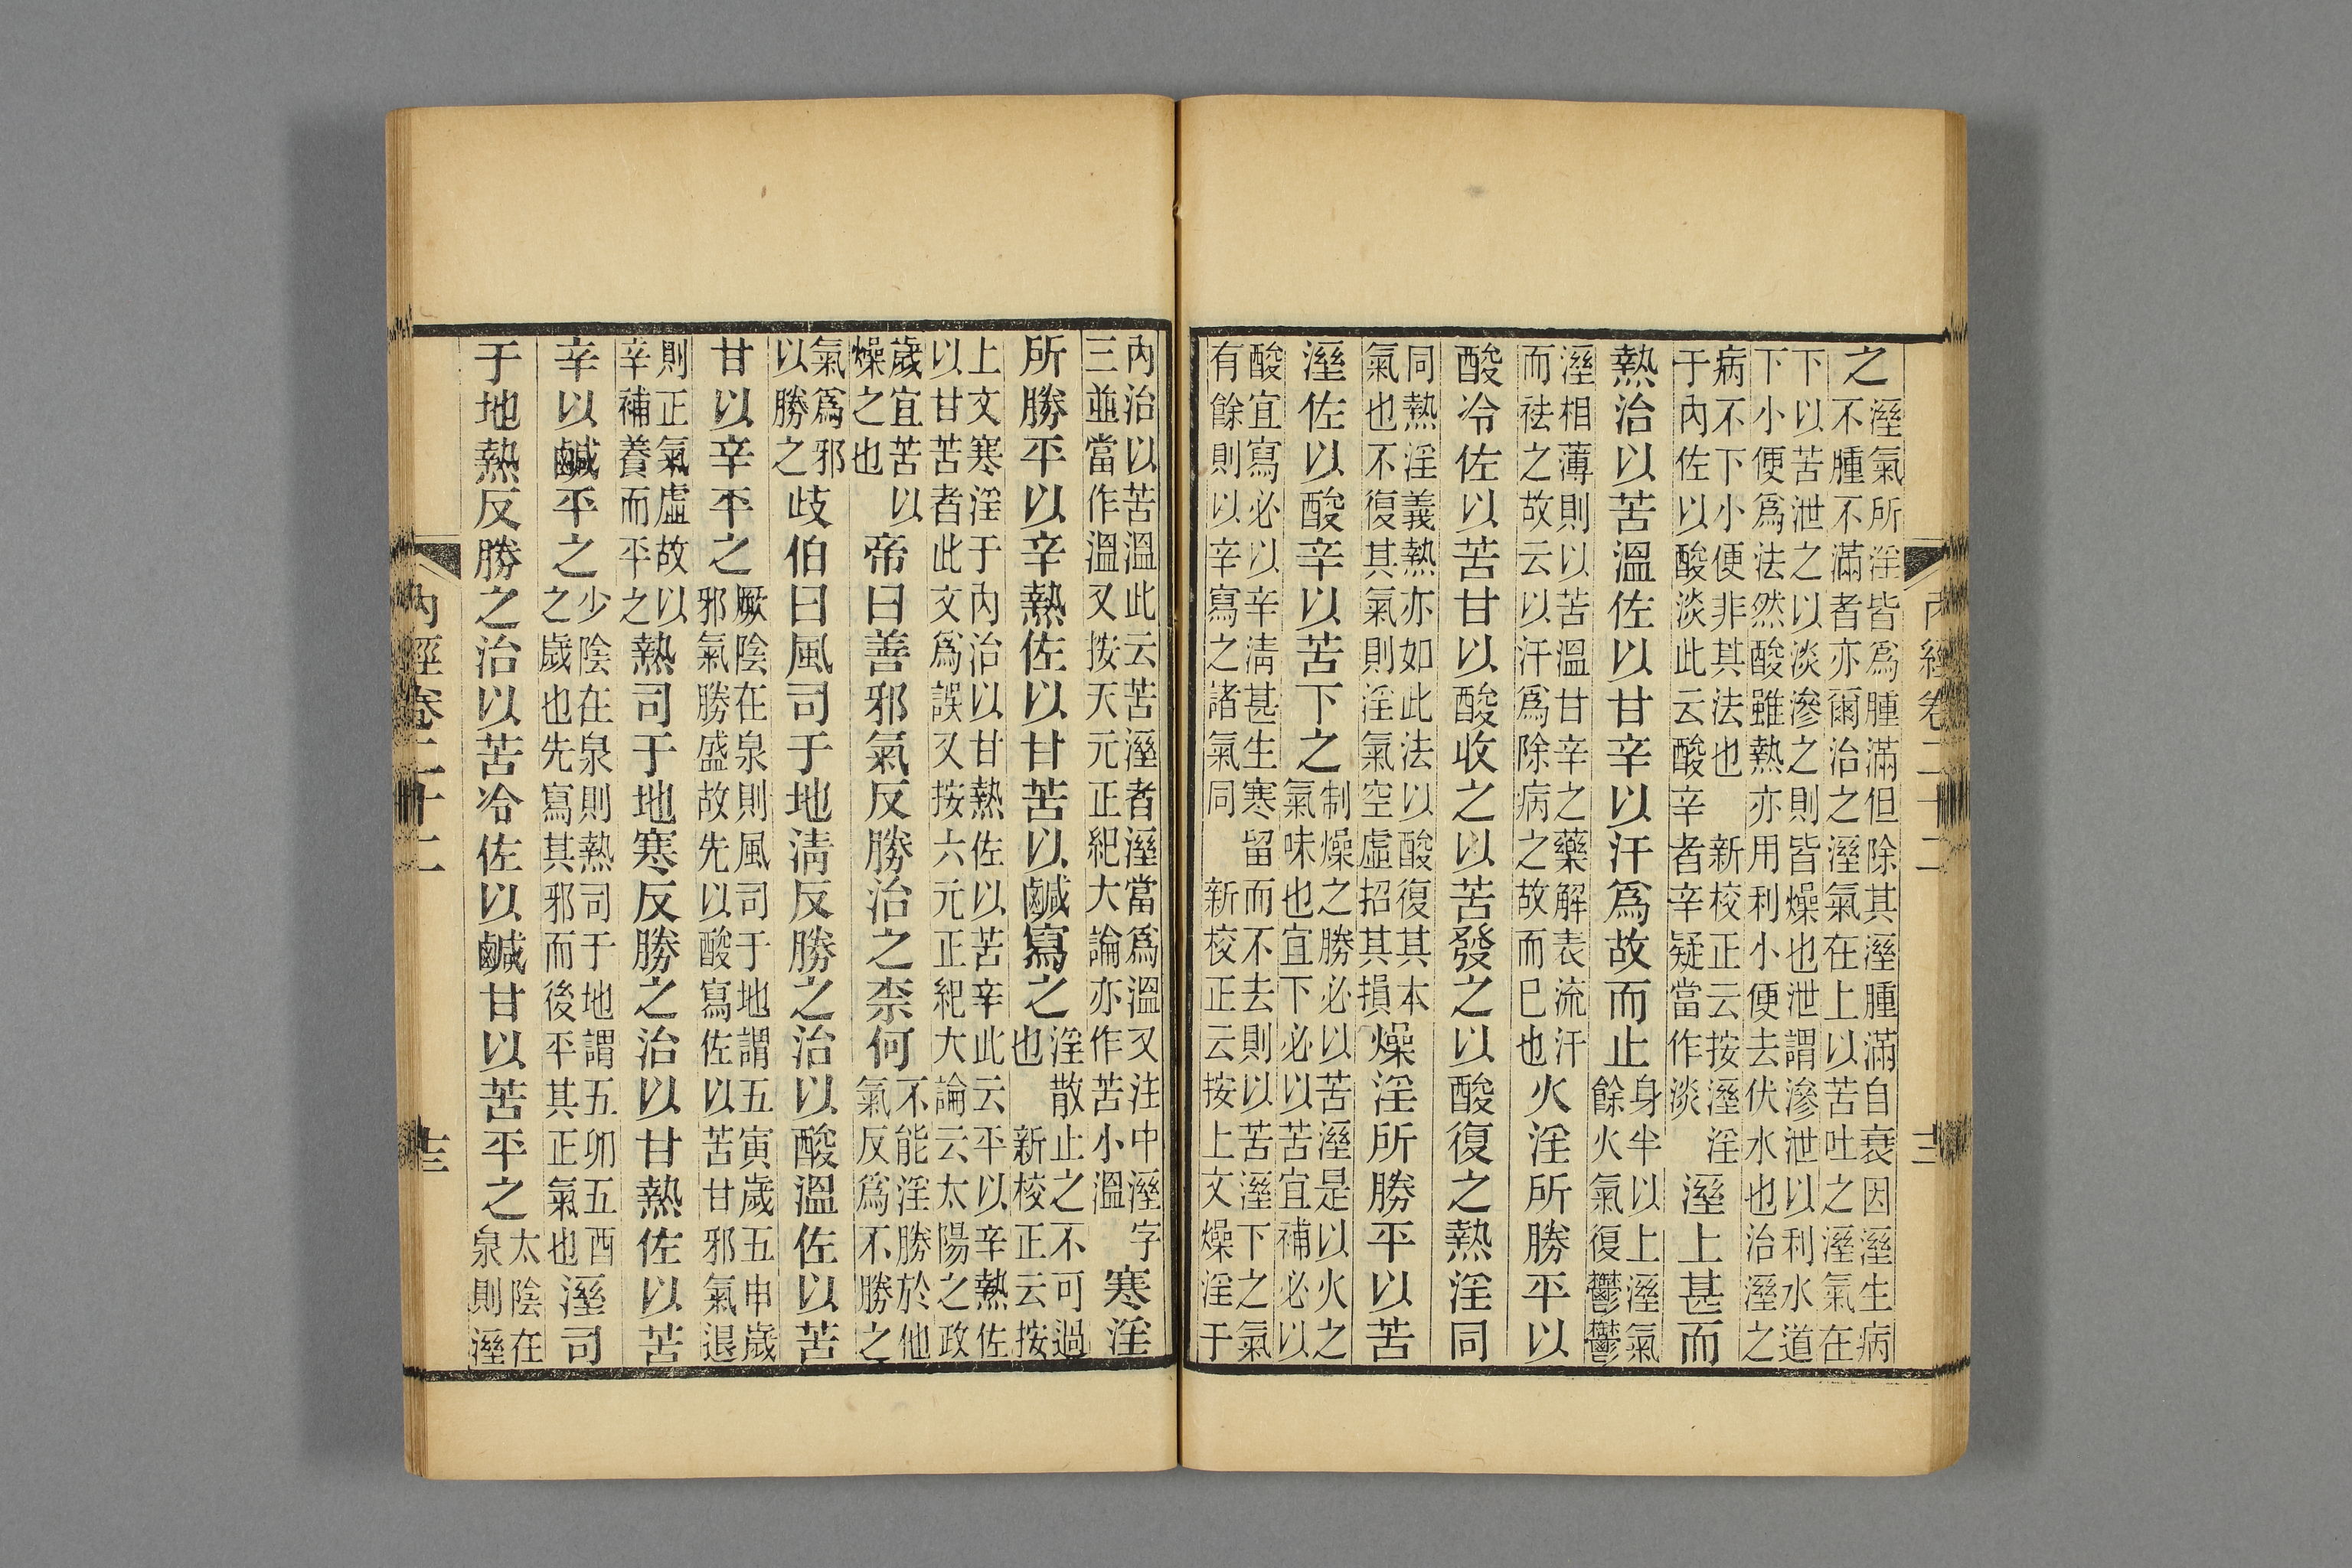 之溼氣所淫皆爲腫滿但除其溼腫滿自衰因溼生病不腫不滿者亦爾治之溼氣在上以苦吐之溼氣在
下以苦泄之以淡滲之則皆燥也泄謂滲泄以利水道下小便爲法然酸雖熱亦用利小便去伏水也治溼之
病不下小便非其法也 新校正云按溼淫于內佐以酸淡此云酸辛者辛疑當作淡溼上甚而
熱治以苦溫佐以甘辛以汗爲故而止身半以上溼氣餘火氣復鬱鬱
溼相薄則以苦溫甘辛之藥解表流汗而祛之故云以汗爲除病之故而巳也火淫所勝平以
酸冷佐以苦甘以酸收之以苦發之以酸復之熱淫同
同熱淫義熱亦如此法以酸復其本氣也不復其氣則淫氣空虛招其損燥淫所勝平以苦
溼佐以酸辛以苦下之制燥之勝必以苦溼是以火之氣味也宜下必以苦宜補必以
酸宜寫必以辛清甚生寒留而不去則以苦溼下之氣有餘則以辛寫之諸氣同 新校正云按上文燥淫于
內經卷二十二
內治以苦溫此云苦溼者溼當爲溫又注中溼字三並當作溫又按天元正紀大論亦作苦小溫寒淫
所勝平以辛熱佐以甘苦以鹹寫之淫散止之不可過也 新校正云按
上文寒淫于內治以甘熱佐以苦辛此云平以辛熱佐以甘苦者此文爲誤又按六元正紀大論云太陽之政
歲宜苦以燥之也帝曰善邪氣反勝治之柰何不能淫勝於他氣反爲不勝之
氣爲邪以勝之歧伯曰風司于地清反勝之治以酸溫佐以苦
甘以辛平之厥陰在泉則風司于地謂五寅歲五申歲邪氣勝盛故先以酸寫佐以苦甘邪氣退
則正氣虛故以辛補養而平之熱司于地寒反勝之治以甘熱佐以苦
辛以鹹平之少陰在泉則熱司于地謂五卯五酉之歲也先寫其邪而後平其正氣也溼司
于地熱反勝之治以苦冷佐以鹹甘以苦平之太陰在泉則溼
內經卷二十二
十三